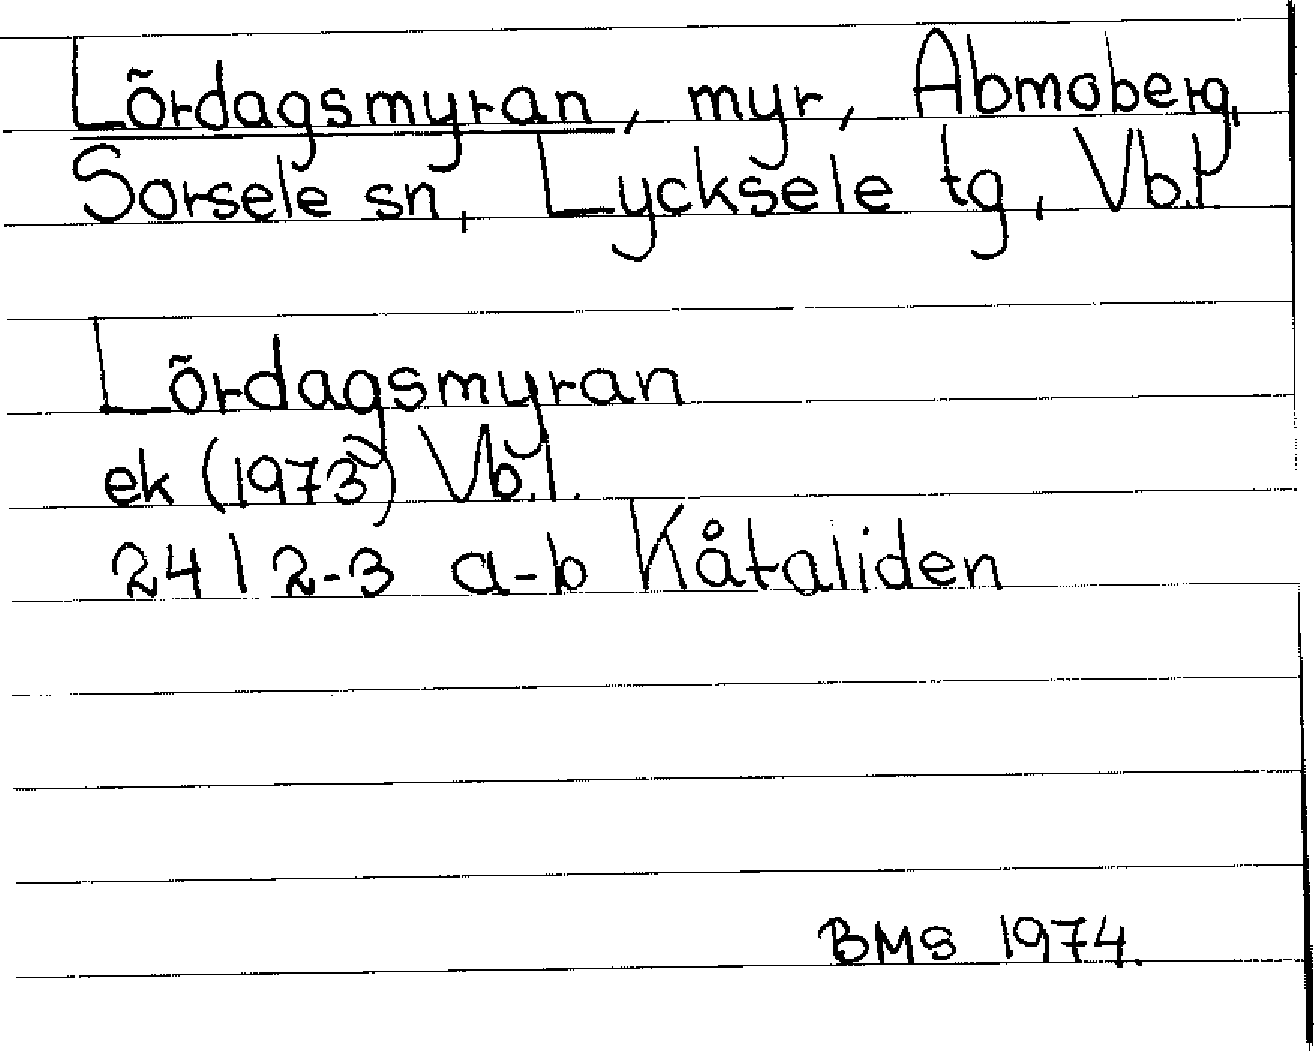 Lördagsmyran, myr, Abmoberg,
Sorsele sn, Lycksele tg, Vb.l
Lördagsmyran
ek (1973) Vb.l.
24 I 2-3 a-b Kåtaliden
BMS 1974.